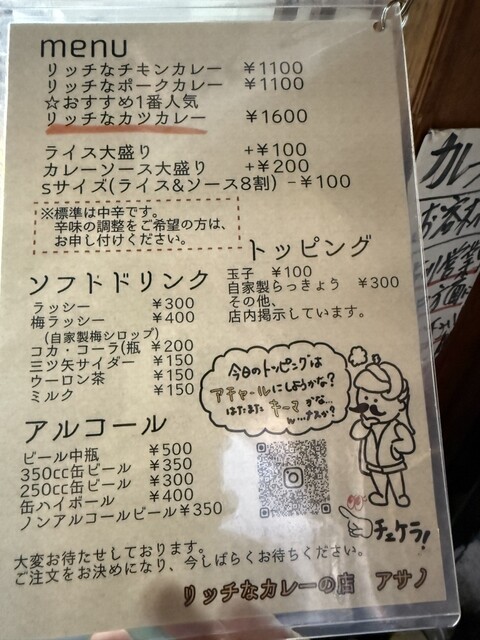 menu
リッチなチキンカレー ￥1100
リッチなポークカレー ￥1100
☆おすすめ1番人気
リッチなカツカレー ￥1600
ライス大盛り +￥100
カレーソース大盛り +￥200
sサイズ(ライス&ソース8割) -￥100
※標準は中辛です。
辛味の調整をご希望の方は、
お申し付けください。
トッピング
玉子 ￥100
自家製らっきょう ￥300
その他、
店内掲示しています。
ソフトドリンク
ラッシー ￥300
梅ラッシー ￥400
(自家製梅シロップ)
コカ・コーラ(瓶 ￥200
三ツ矢サイダー ￥150
ウーロン茶 ￥150
ミルク ￥150
今日のトッピングは
アチャールにしようかな?
はたまた キーマ かな…
ん…ナスか?
アルコール
ビール中瓶 ￥500
350cc缶ビール ￥350
250cc缶ビール ￥300
缶ハイボール ￥400
ノンアルコールビール￥350
チェケラ!
大変お待たせしております。
ご注文をお決めになり、今しばらくお待ちください。
リッチなカレーの店 アサノ
カレー